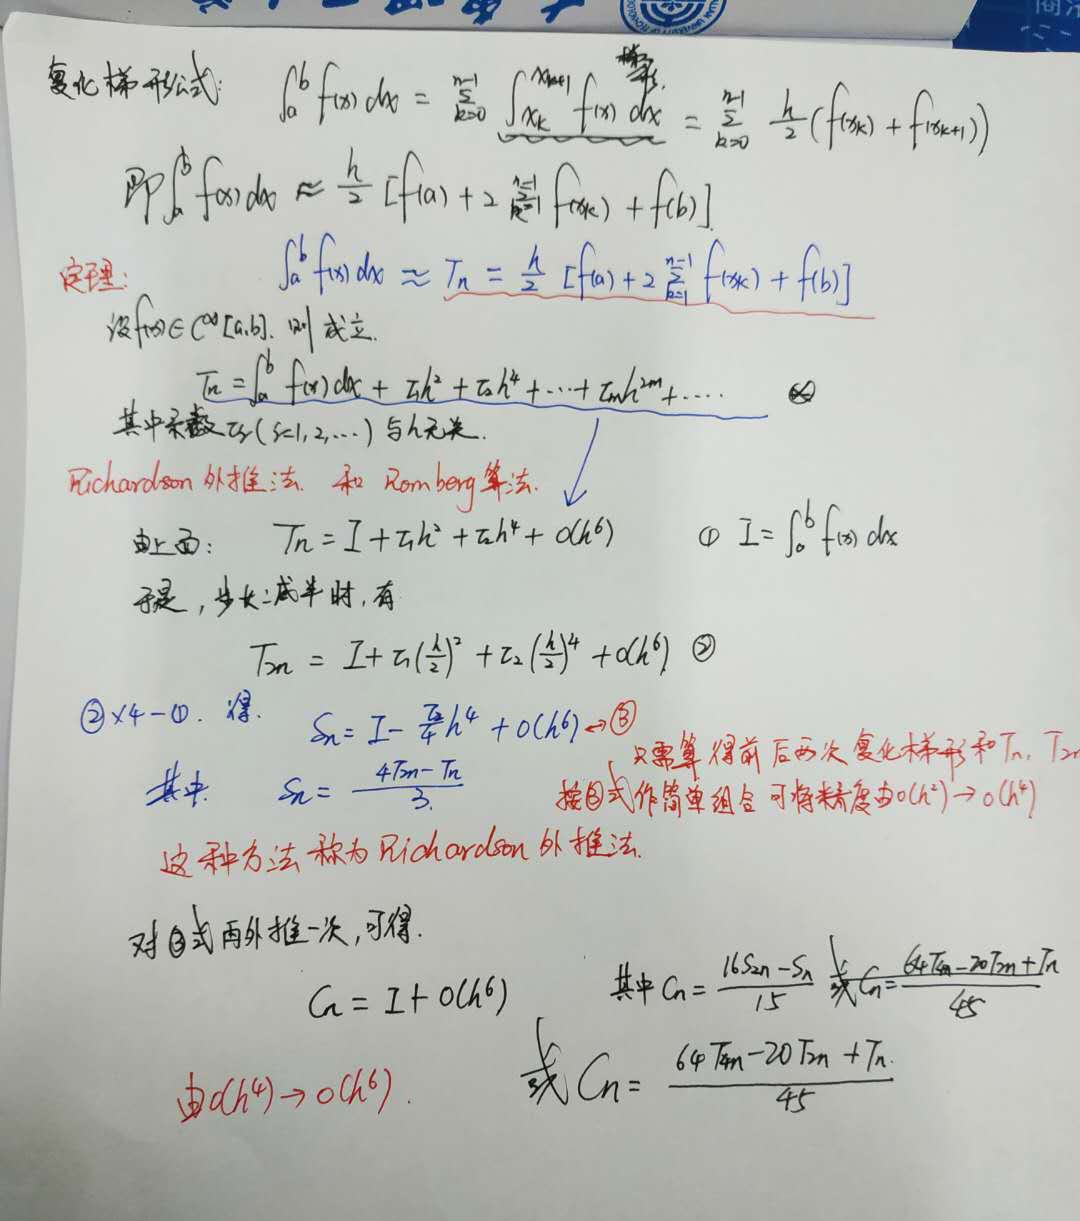 复化梯形公式: ∫_a^b f(x) dx = Σ_{k=0}^{n-1} ∫_{x_k}^{x_{k+1}} f(x) dx 梯形. = Σ_{k=0}^{n-1} h/2 (f(x_k) + f(x_{k+1}))
即 ∫_a^b f(x) dx ≈ h/2 [f(a) + 2 Σ_{k=1}^{n-1} f(x_k) + f(b)].
定理: ∫_a^b f(x) dx ≈ T_n = h/2 [f(a) + 2 Σ_{k=1}^{n-1} f(x_k) + f(b)]
设 f(x) ∈ C^∞[a,b]. 则成立.
T_n = ∫_a^b f(x) dx + τ_1 h^2 + τ_2 h^4 + ··· + τ_m h^{2m} + ····
其中系数 τ_s (s=1,2,···) 与h无关.
Richardson 外推法. 和 Romberg 算法.
由上面: T_n = I + τ_1 h^2 + τ_2 h^4 + O(h^6) ① I = ∫_a^b f(x) dx
于是, 步长二减半时, 有
T_{2n} = I + τ_1 (h/2)^2 + τ_2 (h/2)^4 + O(h^6) ②
②×4-①. 得. S_n = I - τ_2/4 h^4 + O(h^6) → ③
只需算得前后两次复化梯形和 T_n, T_{2n}
其中. S_n = (4T_{2n} - T_n)/3.
按③式作简单组合可将精度由O(h^2) → O(h^4)
这种方法称为 Richardson 外推法.
对③式再外推一次, 可得.
C_n = I + O(h^6) 其中 C_n = (16S_{2n} - S_n)/15 或 C_n = (64T_{4n} - 20T_{2n} + T_n)/45
由O(h^4) → O(h^6). 或 C_n = (64T_{4n} - 20T_{2n} + T_n)/45